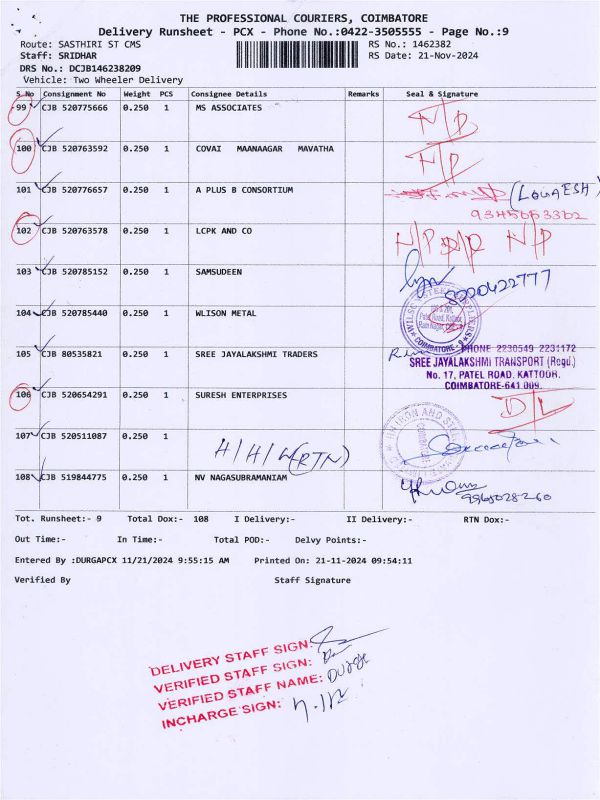 THE PROFESSIONAL COURIERS, COIMBATORE
Delivery Runsheet - PCX - Phone No.:0422-3505555 - Page No.:9
Route: SASTHIRI ST CMS RS No.: 1462382
Staff: SRIDHAR RS Date: 21-Nov-2024
DRS No.: DCJB146238209
Vehicle: Two Wheeler Delivery
S No Consignment No Weight PCS Consignee Details Remarks Seal & Signature
99 CJB 520775666 0.250 1 MS ASSOCIATES N/D
100 CJB 520763592 0.250 1 COVAI MAANAAGAR MAVATHA N/P
101 CJB 520776657 0.250 1 A PLUS B CONSORTIUM (LOGAESH)
102 CJB 520763578 0.250 1 LCPK AND CO N/P N/P
103 CJB 520785152 0.250 1 SAMSUDEEN 8220422777
104 CJB 520785440 0.250 1 WLISON METAL
COIMBATORE - 9
105 CJB 80535821 0.250 1 SREE JAYALAKSHMI TRADERS
PHONE 2230549 2231172
SREE JAYALAKSHMI TRANSPORT (Regd.)
No. 17, PATEL ROAD, KATTOOR,
COIMBATORE-641 009.
106 CJB 520654291 0.250 1 SURESH ENTERPRISES D/L
107 CJB 520511087 0.250 1 H/H/W(RTN)
108 CJB 519844775 0.250 1 NV NAGASUBRAMANIAM
9965028260
Tot. Runsheet:- 9 Total Dox:- 108 I Delivery:- II Delivery:- RTN Dox:-
Out Time:- In Time:- Total POD:- Delvy Points:-
Entered By :DURGAPCX 11/21/2024 9:55:15 AM Printed On: 21-11-2024 09:54:11
Verified By Staff Signature
DELIVERY STAFF SIGN:
VERIFIED STAFF SIGN:
VERIFIED STAFF NAME: Durga
INCHARGE SIGN: